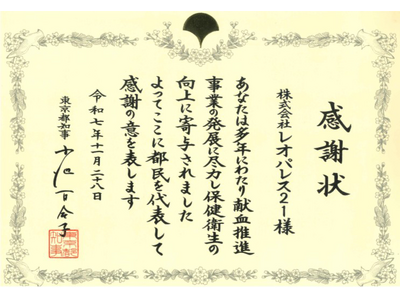 感謝状
株式会社レオパレス21様
あなたは多年にわたり献血推進
事業の発展に尽力し保健衛生の
向上に寄与されました
よってここに都民を代表して
感謝の意を表します
令和七年十一月二十八日
東京都知事 小池百合子